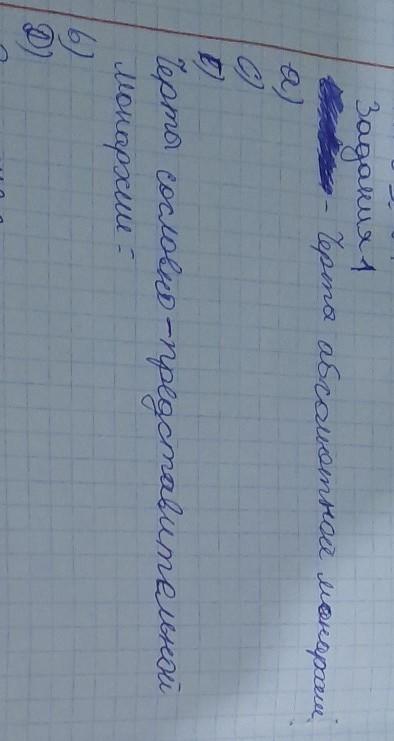 Задания 1
- Черта абсолютной монархии
a)
c)
Черты сословно-представительной
монархии:
b)
D)